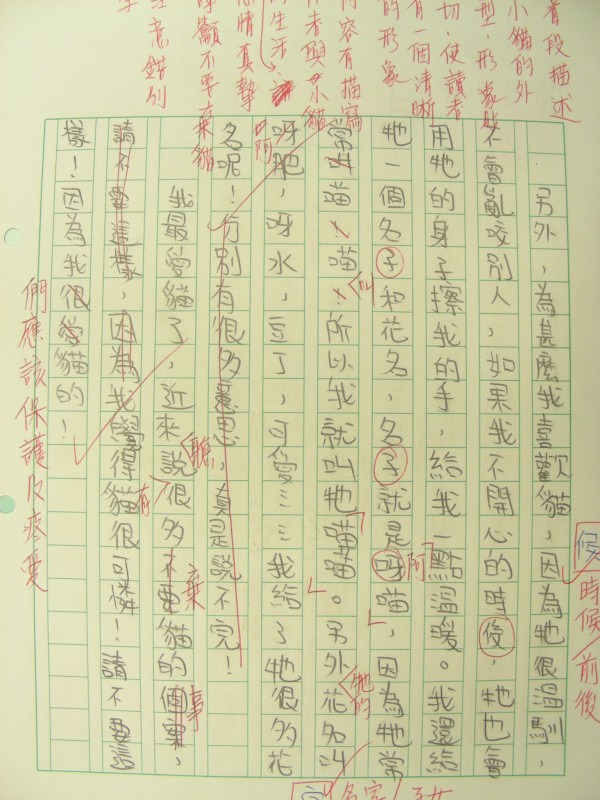 首段描述
小貓的外
型,形象
切,使讀者
有一個清晰
的形象
內容有描寫
作者與小貓
的生活
情真摯
籲不要棄貓
意錯別
字
另外,為甚麼我喜歡貓,因為牠很溫馴,
不會亂咬別人,如果我不開心的時後,牠也會
候
時候
前後
用牠的身子擦我的手,給我一點溫暖。我還給
牠一個名子和花名,名子就是呀喵,因為牠常
阿
名字
常叫喵、喵、所以我就叫牠喵喵。另外花名叫
叫
牠的
呀肥,呀水,豆丁,可愛……我給了牠很多花
阿
名呢!分別有很多意思,真是說不完!
我最愛貓了,近來說很多不要貓的個案,
聽
有
棄
事
請不要這樣,因為我覺得貓很可憐!請不要這
樣!因為我很愛貓的!
們應該保護及疼愛